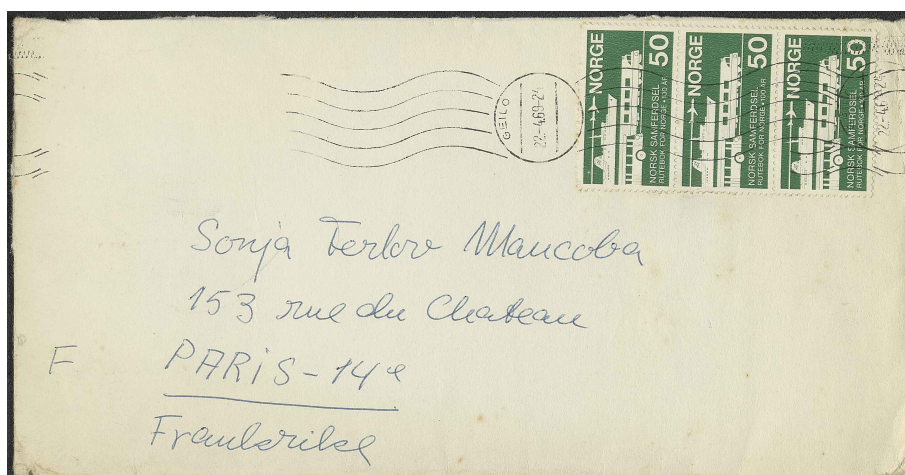 NORGE 50
NORSK SAMFERDSEL
RUTEBOK FOR NORGE • 100 ÅR
NORGE 50
NORSK SAMFERDSEL
RUTEBOK FOR NORGE • 100 ÅR
NORGE 50
NORSK SAMFERDSEL
RUTEBOK FOR NORGE • 100 ÅR
GEILO
22.-4.69-2
22.-4.69-2
Sonja Ferlov Mancoba
153 rue du Chateau
F PARIS-14e
Frankrike